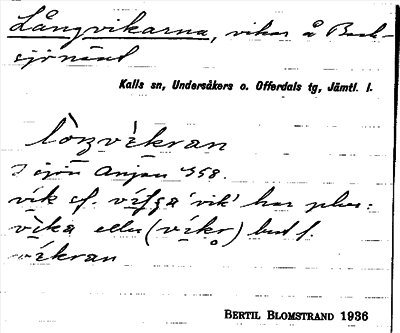 Långvikarna, vikar å Back-
sjönäset
Kalls sn, Undersåkers o. Offerdals tg, Jämtl. l.
lòŋvìkran
I sjön Anjan 458.
vik cf. 'vik' har plur:
vìka eller (vìkr̥) best f.
vìkran
BERTIL BLOMSTRAND 1936